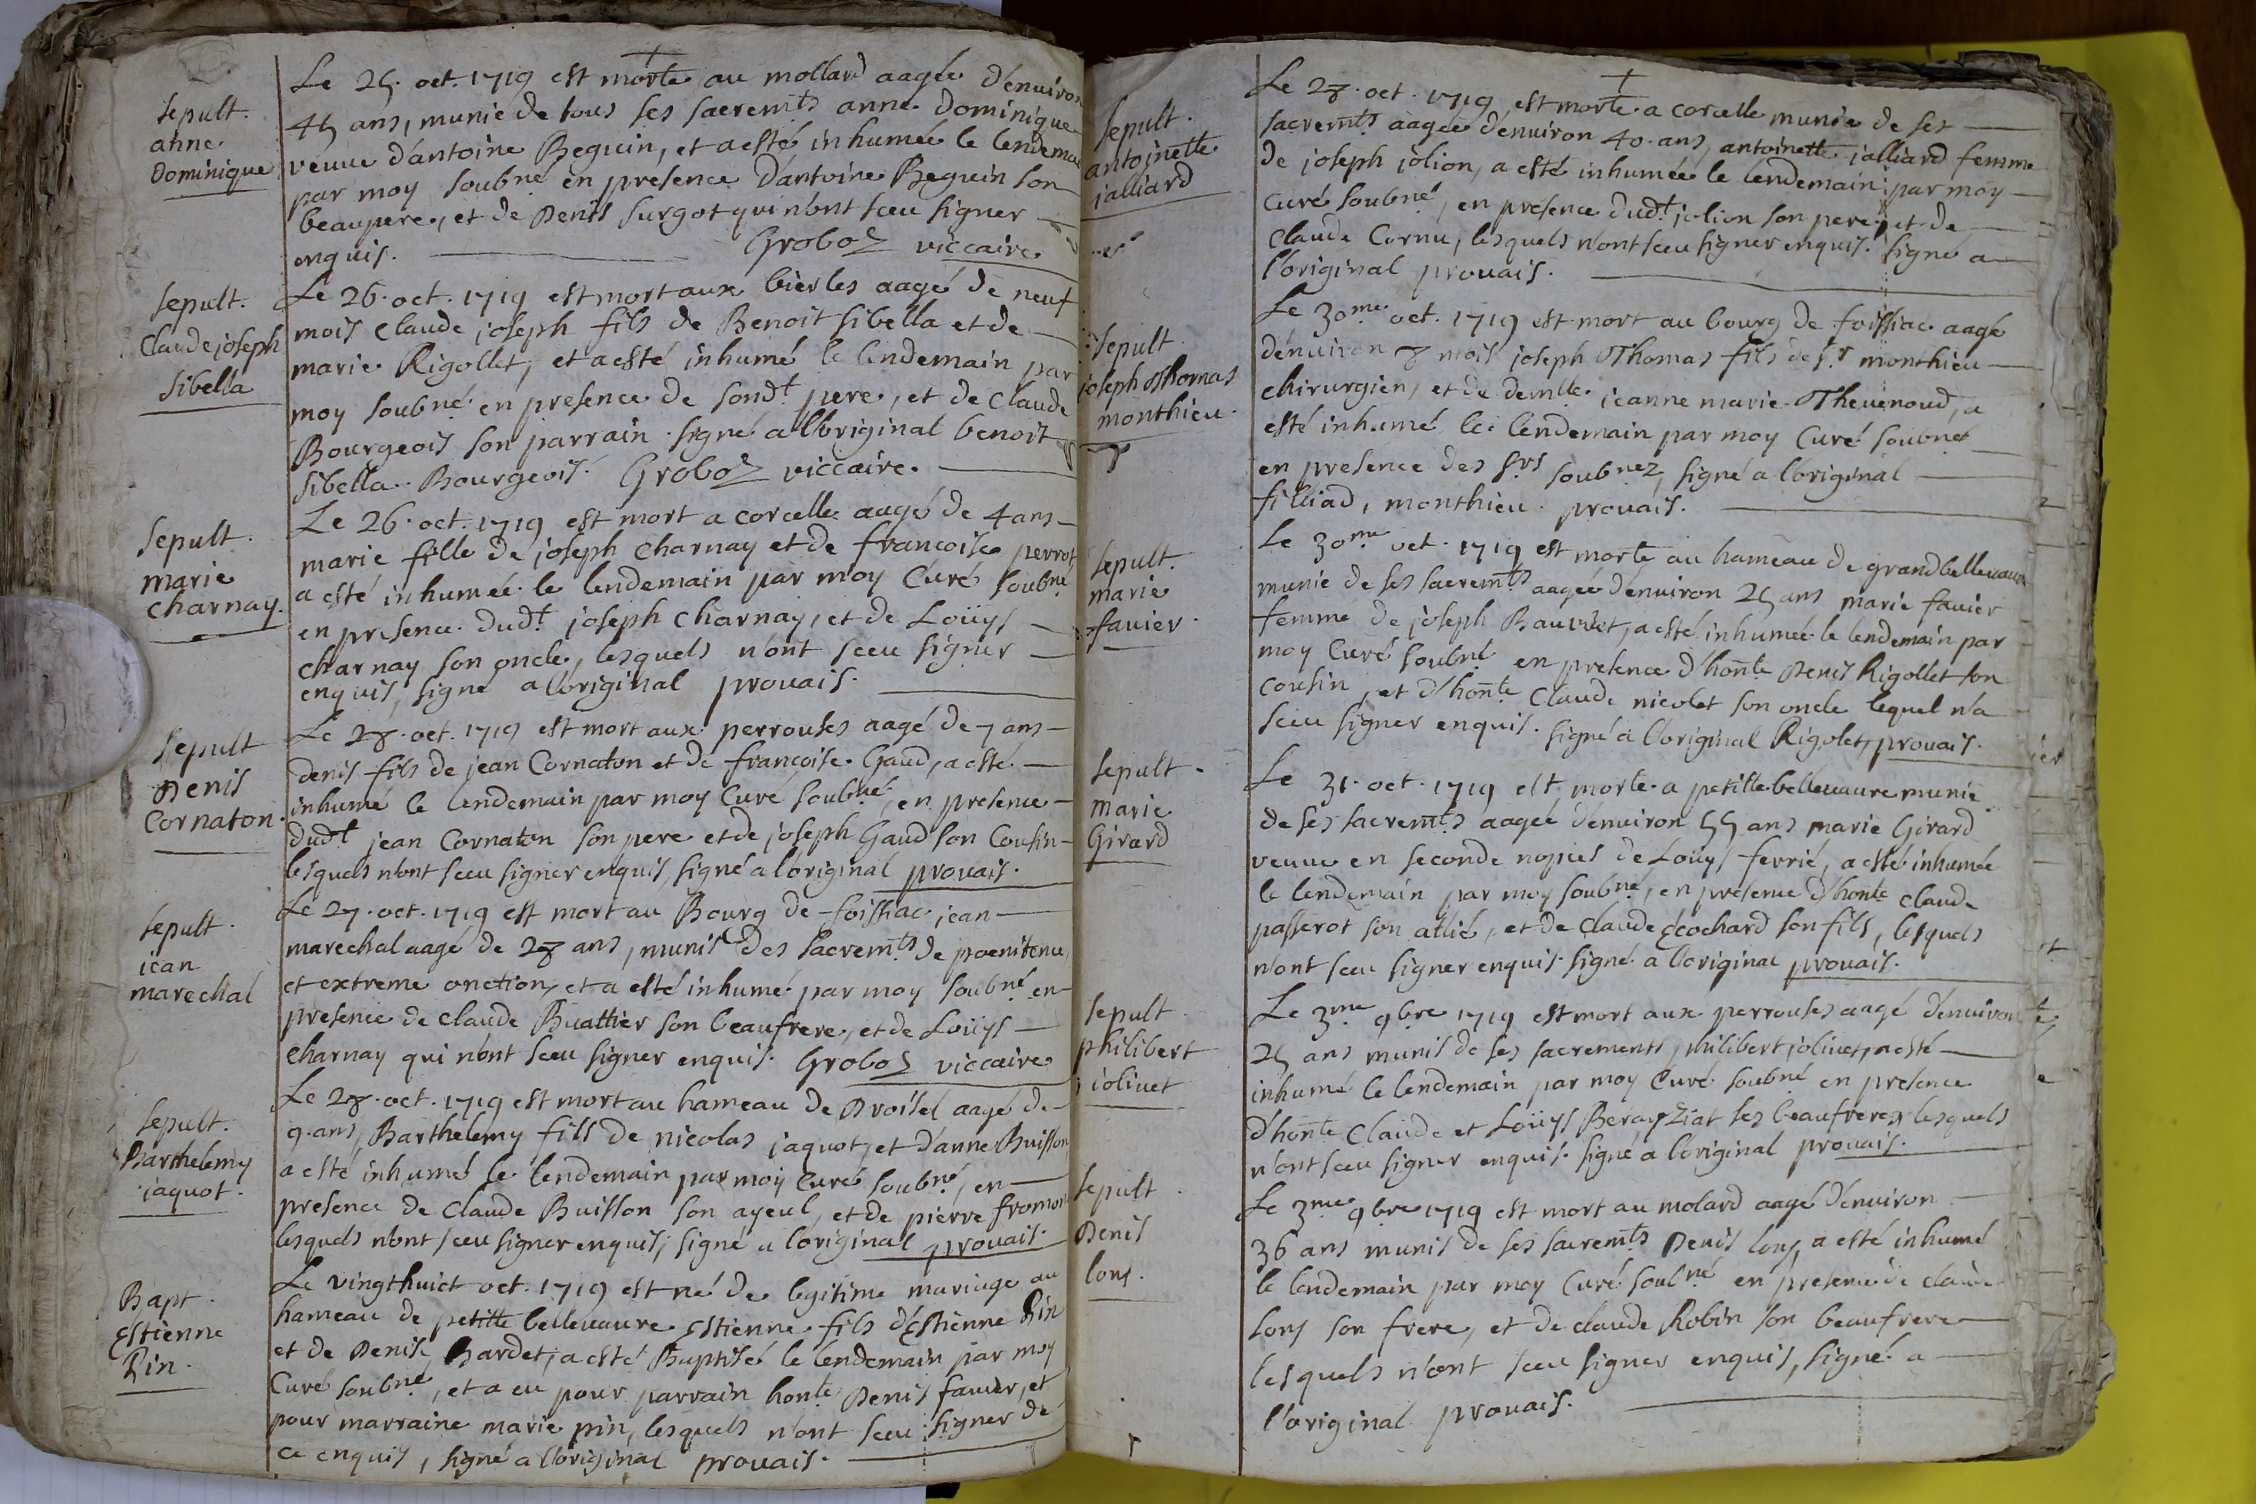 Sepult.
anne
Dominique
Le 25. oct. 1719 est morte au mollard aagée d'enuiron
45 ans, munie de tous ses sacremts anne Dominique
veuue d'antoine Beguin, et a esté inhumée le lendemain
par moy soubné en presence d'antoine Beguin son
beaupere, et de Denis surgot qui n'ont sceu signer
enquis. Groboz viccaire
Sepult.
Claude joseph
Sibella
Le 26. oct. 1719 est mort aux bierles aagé de neuf
mois Claude joseph fils de Benoit Sibella et de
marie Rigollet, et a esté inhumé le lendemain par
moy soubné en presence de sondt pere, et de Claude
Bourgeois son parrain signé a l'original benoit
Sibella. Bourgeois. Groboz viccaire.
Sepult.
marie
Charnay.
Le 26. oct. 1719 est mort a corcelle aagé de 4 ans
marie fille de joseph Charnay et de francoise perrot
a esté inhumée le lendemain par moy Curé soubné
en presence dudt joseph Charnay, et de Loüys
Charnay son oncle, lesquels n'ont sceu signer
enquis, signé a l'original prouais.
Sepult
Denis
Cornaton.
Le 28. oct. 1719 est mort aux perrouses aagé de 7 ans
denis fils de jean Cornaton et de francoise Gaud, a esté
inhumé le lendemain par moy Curé soubné, en presence
dudt jean Cornaton son pere et de joseph Gaud son Cousin
lesquels n'ont sceu signer enquis, signé a l'original prouais.
Sepult.
jean
marechal
Le 27. oct. 1719 est mort au Bourg de foissiac jean
marechal aagé de 28 ans, munis des sacremts de poenitence
et extreme onction, et a esté inhumé par moy soubné en
presence de Claude Buattier son beaufrere, et de Loüys
Charnay qui n'ont sceu signer enquis. Groboz viccaire
Sepult.
Barthelemy
jaquot.
Le 28. oct. 1719 est mort au hameau de Droisel aagé de
9. ans, Barthelemy fils de nicolas jaquot, et d'anne Buisson
a esté inhumé le lendemain par moy Curé soubné, en
presence de Claude Buisson son ayeul, et de pierre fromont
lesquels n'ont sceu signer enquis, signé a l'original prouais.
Bapt.
Estienne
Pin.
Le vingthuict oct. 1719 est né de legitime mariage au
hameau de petitte belleuaure Estienne fils d'Estienne Pin
et de Denise Bardet, a esté Baptisé le lendemain par moy
Curé soubné, et a eu pour parrain honte Denis fauier, et
pour marraine marie pin, lesquels n'ont sceu signer de
ce enquis, signé a l'original prouais.
Sepult.
antoinette
jalliard
Le 28. oct. 1719 est morte a corcelle munie de ses
sacremts aagée d'enuiron 40. ans, antoinette jalliard femme
de joseph jolion, a esté inhumée le lendemain par moy
Curé soubné, en presence dudt jolion son pere, et de
Claude Cornu, lesquels n'ont sceu signer enquis. signé a
l'original prouais.
Sepult
joseph Thomas
monthieu.
Le 30me oct. 1719 est mort au bourg de foissiac aagé
d'enuiron 8 mois joseph Thomas fils de sr monthieu
chirurgien, et de demlle jeanne marie Theuenoud, a
esté inhumé le lendemain par moy Curé soubné
en presence des srs soubnez, signé a l'original
filliad, monthieu. prouais.
Sepult.
marie
fauier.
Le 30me oct. 1719 est morte au hameau de grandbelleuaure
munie de ses sacremts aagée d'enuiron 25 ans marie fauier
femme de joseph Bauvret, a esté inhumée le lendemain par
moy Curé soubné en presence d'honte Denis Rigollet son
cousin, et d'honte Claude nicolet son oncle lequel n'a
sceu signer enquis. signé a l'original Rigolet, prouais.
Sepult.
Marie
Girard
Le 31. oct. 1719 est morte a petitte belleuaure munie
de ses sacremts aagée d'enuiron 55 ans marie Girard
veuue en seconde nopces de Loüys ferrié, a esté inhumée
le lendemain par moy soubné, en presence d'honte Claude
passerot son allié, et de Claude Ecochard son fils, lesquels
n'ont sceu signer enquis. signé a l'original prouais.
Sepult.
philibert
joliuet
Le 3me 9bre 1719 est mort aux perrouses aagé d'enuiron
25 ans munis de ses sacrements, philibert joliuet, a esté
inhumé le lendemain par moy Curé soubné en presence
d'honte Claude et Loüys Berayziat ses beaufreres, lesquels
n'ont sceu signer enquis. signé a l'original prouais.
Sepult.
Denis
lons.
Le 3me 9bre 1719 est mort au molard aagé d'enuiron
36 ans munis de ses sacremts Denis lons, a esté inhumé
le lendemain par moy Curé soubné en presence de claude
lons son frere, et de claude Robin son beaufrere
lesquels n'ont sceu signer enquis, signé a
l'original prouais.